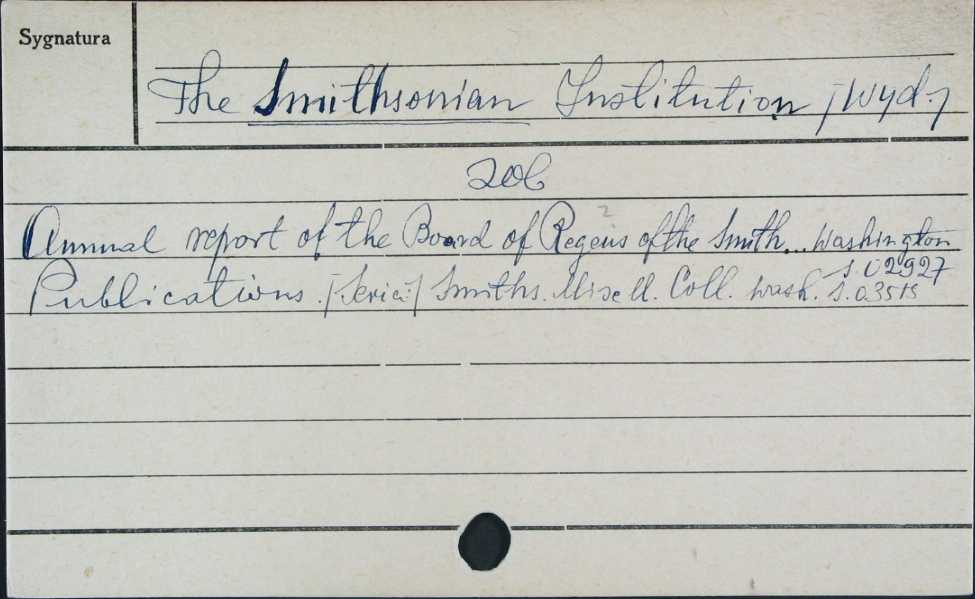 Sygnatura
The Smithsonian Institution /Wyd./
206
Annual report of the Board of Regens of the Smith... Washington
S. 02927
Publications. /Series/ Smiths. Misell. Coll. Wash. S. 03515